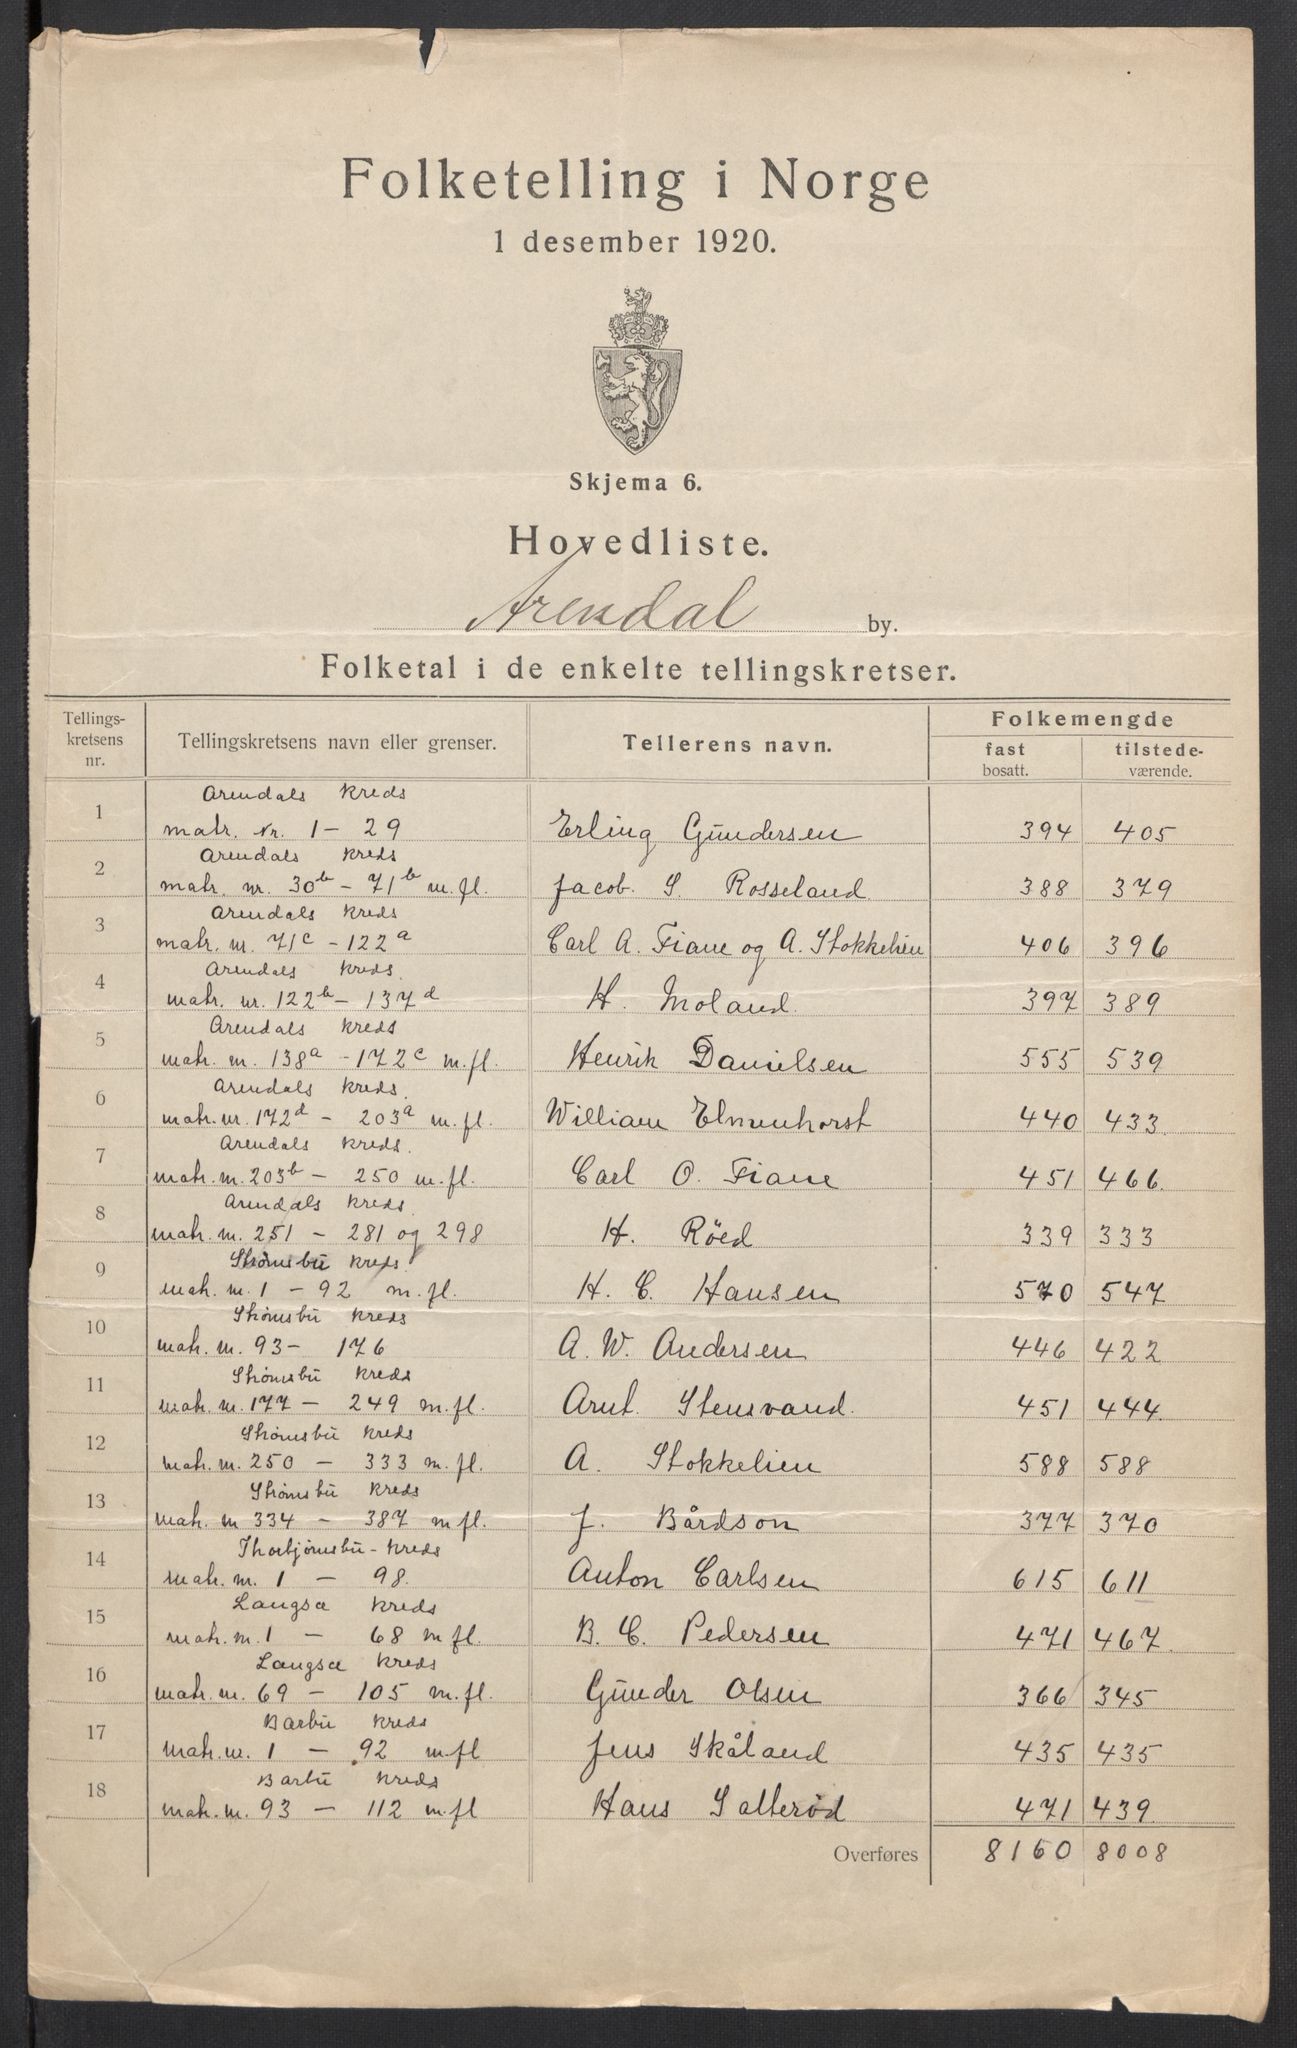 Folketelling i Norge
1 desember 1920.
Skjema 6.
Hovedliste.
Arendal by.
Folketal i de enkelte tellingskretser.
Tellings-kretsens nr. Tellingskretsens navn eller grenser. Tellerens navn. Folkemengde fast bosatt. tilstede-værende.
Arendals kreds
1 matr. nr. 1 - 29 Erling Gundersen 394 405
Arendals kreds
2 matr. nr. 30b - 71b m.fl. Jacob. S. Rosseland 388 379
Arendals kreds
3 matr. nr. 71c - 122a Carl A. Fiane og A. Stokkelien 406 396
Arendals kreds.
4 matr. nr. 122b - 137d H. Moland. 397 389
Arendals kreds
5 matr. nr. 138a - 172c m.fl. Henrik Danielsen 555 539
Arendals kreds.
6 matr. nr. 172d - 203a m.fl. William Elmenhorst 440 433
Arendals kreds.
7 matr. nr. 203b - 250 m.fl. Carl O. Fiane 451 466
Arendals kreds.
8 matr. nr. 251 - 281 og 298 H. Röed 339 333
Strömsbü kreds.
9 matr. nr. 1 - 92 m.fl. H. C. Hansen 570 547
Strömsbü kreds
10 matr. nr. 93 - 176 A. W. Andersen 446 422
Strömsbü kreds
11 matr. nr. 177 - 249 m.fl. Arnt. Stensvand. 451 444
Strömsbü kreds
12 matr. nr. 250 - 333 m.fl. A. Stokkelien 588 588
Strömsbü kreds
13 matr. nr 334 - 387 m fl. J. Bårdson 377 370
Thorbjörnsbü - kreds
14 matr. nr. 1 - 98. Anton Carlsen 615 611
Langsæ kreds
15 matr. nr. 1 - 68 m fl. B. C. Pedersen 471 467
Langsæ kreds
16 matr. nr. 69 - 105 m.fl. Gunder Olsen 366 345
Barbü kreds
17 matr. nr. 1 - 92 m.fl Jens Skåland 435 435
Barbü kreds
18 matr. nr. 93 - 112 m.fl Hans Salteröd 471 439
Overføres 8160 8008